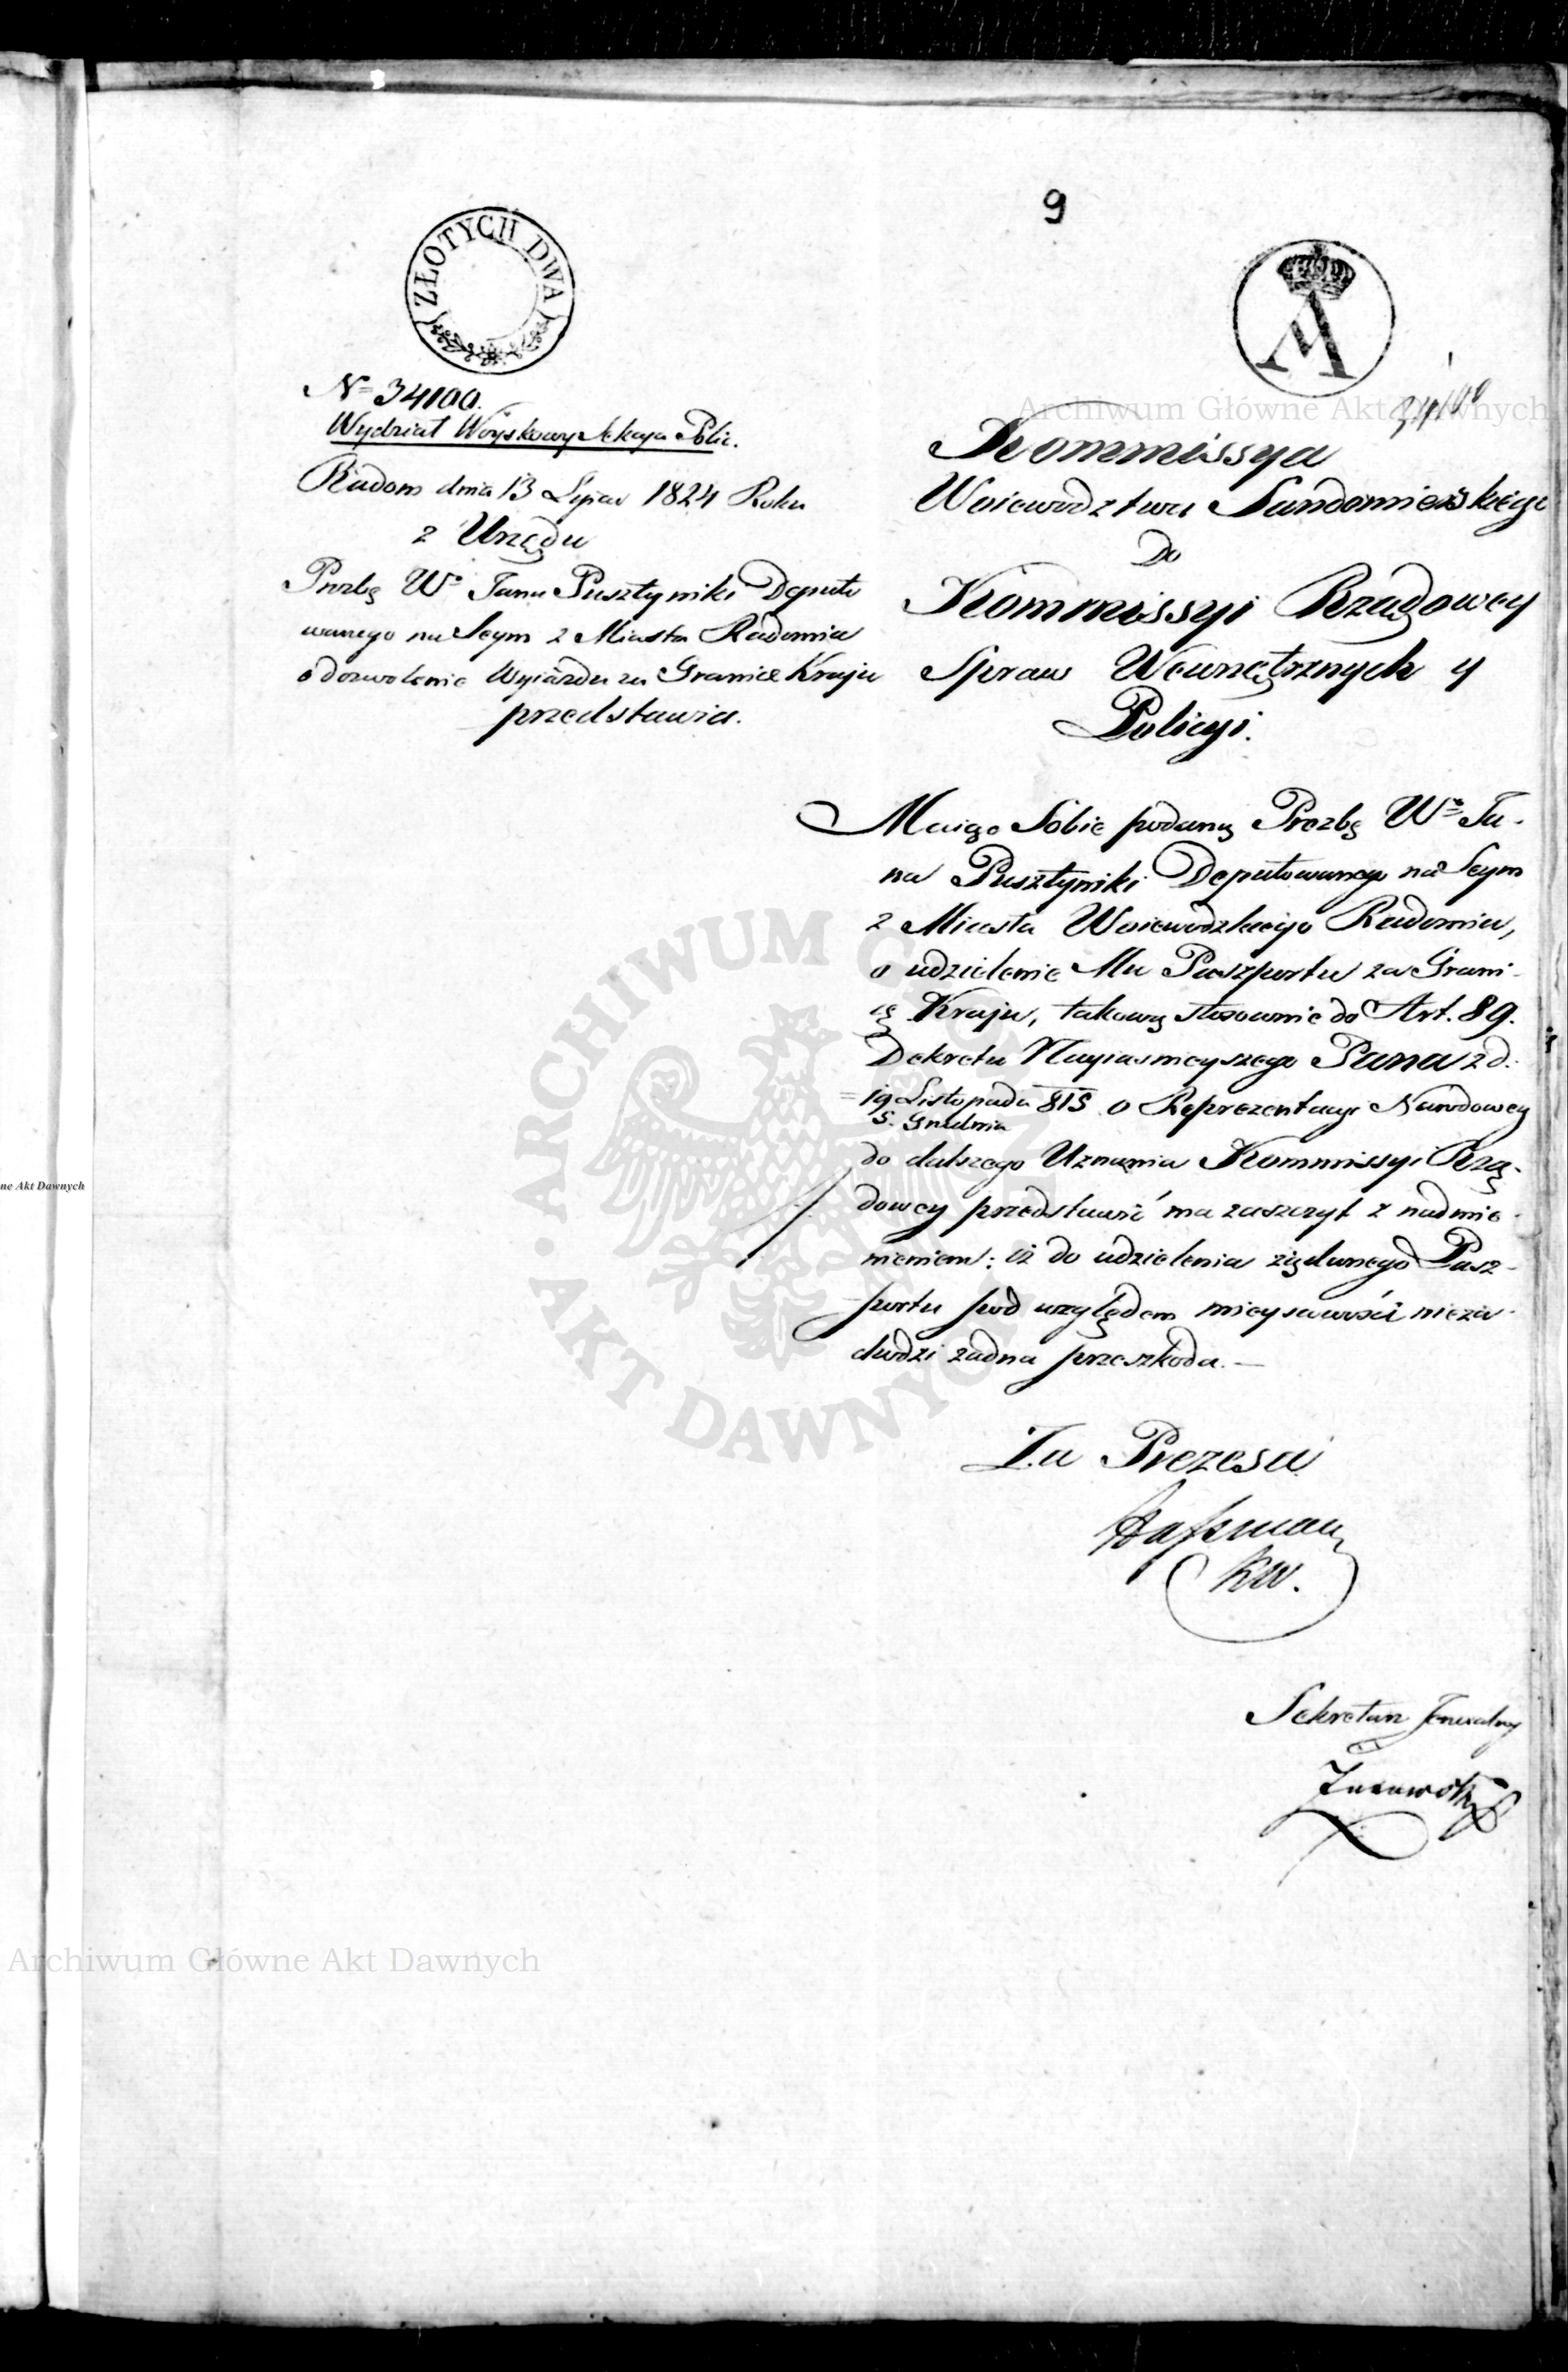 9
ZŁOTYCH DWA
A
N= 34100.
34100
Wydział Woyskowy Sekcya Polic.
Radom dnia 13 Lipca 1824 Roku
z Urzędu
Prozbę Wº Jana Pusztynniki Deputo
wanego na Seym z Miasta Radomia
o dozwolenie Wyiazdu za Granicę Kraju
przedstawia.
Kommissya
Woiewodztwa Sandomierskiego
Do
Kommissyi Rządowey
Spraw Wewnętrznych y
Policyi.
Maiąc Sobie podaną Prozbę Wº Ja-
na Pusztynniki Deputowanego na Seym
z Miasta Woiewodzkiego Radomia,
o udzielenie Mu Paszportu za Grani-
cę Kraju, takową stosownie do Art. 89.
Dekretu Nayiasnieyszego Pana z d.
19 Listopada 815 o Reprezentacyi Narodowey
5. Grudnia
do dalszego Uznania Kommissyi Rzą-
dowey przedstawić ma zaszczyt z nadmie-
nieniem: iż do udzielenia żądanego Pasz-
portu pod względem mieyscowości nieza-
chodzi żadna przeszkoda.—
Za Prezesa
KW.
Sekretarz Jeneralny
Archiwum Główne Akt Dawnych
ARCHIWUM GŁÓWNE • AKT DAWNYCH •
ne Akt Dawnych
Archiwum Główne Akt Dawnych